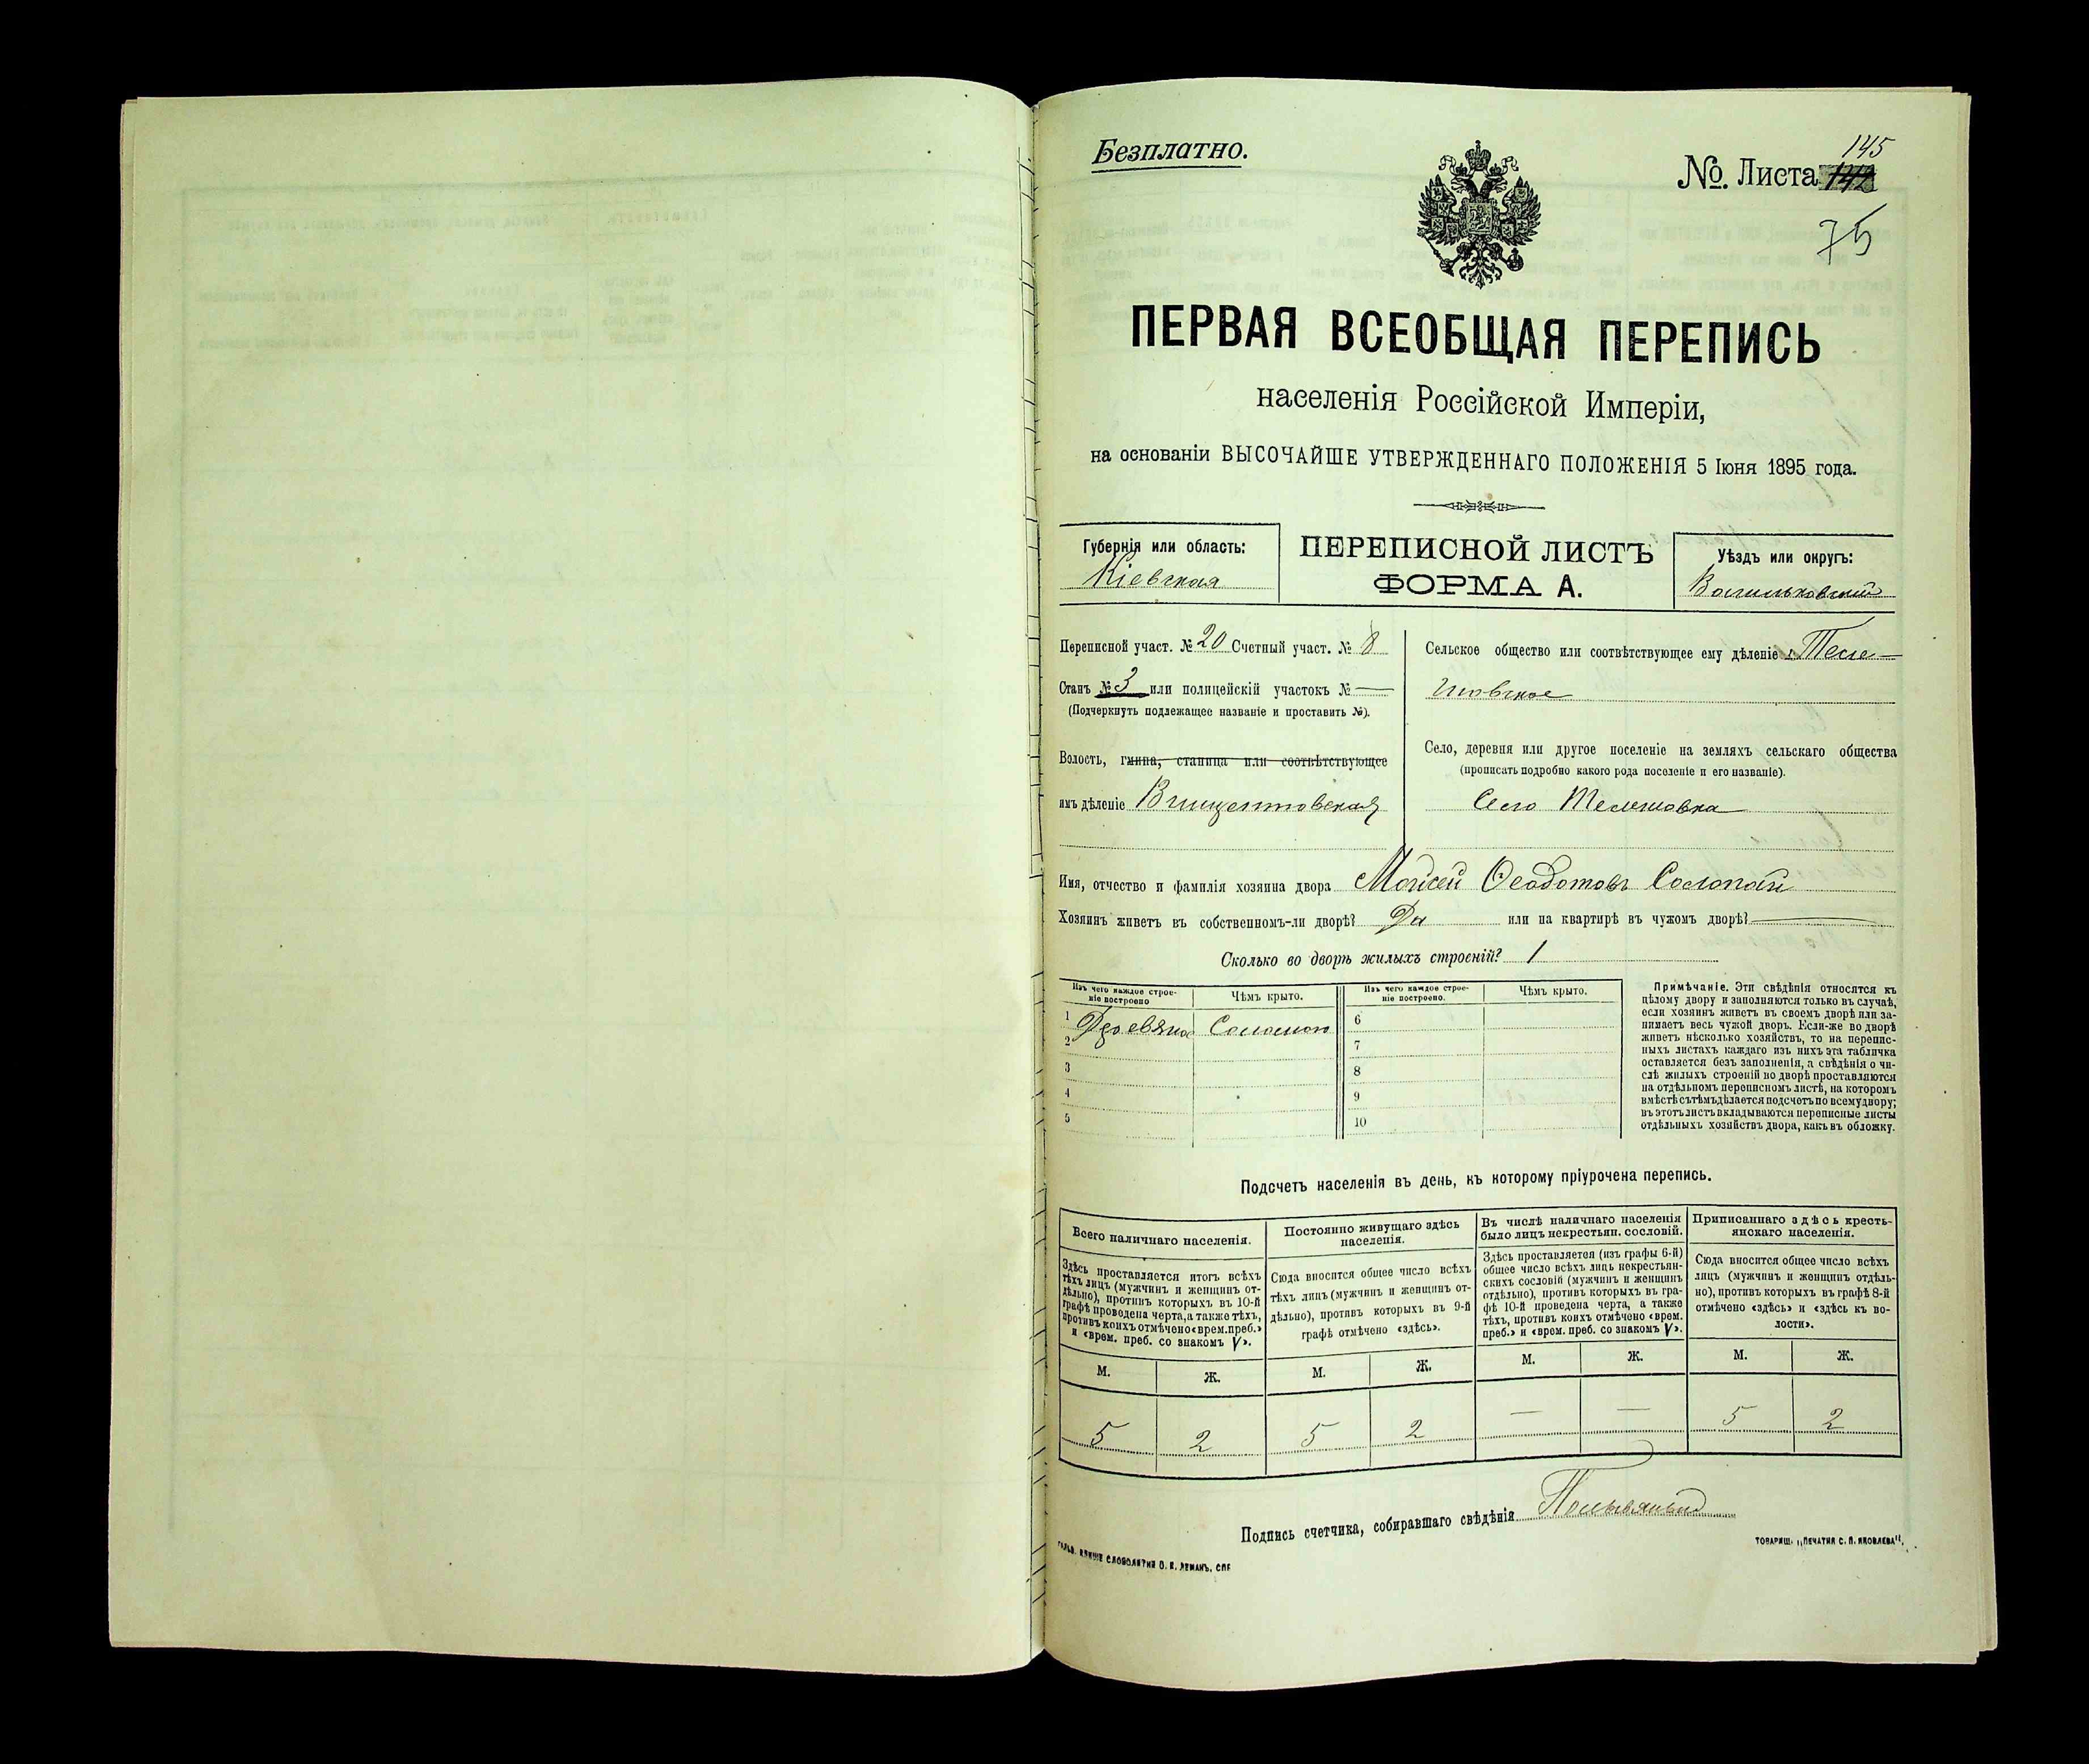 Безплатно.
№. Листа 145
75
ПЕРВАЯ ВСЕОБЩАЯ ПЕРЕПИСЬ
населенія Россійской Имперіи,
на основаніи ВЫСОЧАЙШЕ УТВЕРЖДЕННАГО ПОЛОЖЕНІЯ 5 Іюня 1895 года.
Губернія или область:
Кіевская
ПЕРЕПИСНОЙ ЛИСТЪ
ФОРМА А.
Уѣздъ или округъ:
Васильковскій
Переписной участ. № 20 Счетный участ. № 8
Станъ № 3 или полицейскій участокъ № —
(Подчеркнуть подлежащее названіе и проставить №).
Волость, гмина, станица или соотвѣтствующее
имъ дѣленіе Винцентовская
Сельское общество или соотвѣтствующее ему дѣленіе Теле-
шовское
Село, деревня или другое поселеніе на земляхъ сельскаго общества
(прописать подробно какого рода поселеніе и его названіе).
Село Телешовка
Имя, отчество и фамилія хозяина двора Мойсей Ѳеодотовъ Солопай
Хозяинъ живетъ въ собственномъ-ли дворѣ? Да или на квартирѣ въ чужомъ дворѣ? —
Сколько во дворѣ жилыхъ строеній? 1
Изъ чего каждое строе-
ніе построено
Чѣмъ крыто.
Изъ чего каждое строе-
ніе построено.
Чѣмъ крыто.
1 Деревяно Соломою
2
3
4
5
6
7
8
9
10
Примѣчаніе. Эти свѣдѣнія относятся къ
цѣлому двору и заполняются только въ случаѣ,
если хозяинъ живетъ въ своемъ дворѣ или за-
нимаетъ весь чужой дворъ. Если-же во дворѣ
живетъ нѣсколько хозяйствъ, то на перепис-
ныхъ листахъ каждаго изъ нихъ эта табличка
оставляется безъ заполненія, а свѣдѣнія о чи-
слѣ жилыхъ строеній во дворѣ проставляются
на отдѣльномъ переписномъ листѣ, на которомъ
вмѣстѣ съ тѣмъ дѣлается подсчетъ по всему двору;
въ этотъ листъ вкладываются переписные листы
отдѣльныхъ хозяйствъ двора, какъ въ обложку.
Подсчетъ населенія въ день, къ которому пріурочена перепись.
Всего наличнаго населенія.
Здѣсь проставляется итогъ всѣхъ
тѣхъ лицъ (мужчинъ и женщинъ от-
дѣльно), противъ которыхъ въ 10-й
графѣ проведена черта, а также тѣхъ,
противъ коихъ отмѣчено «врем. преб.»
и «врем. преб. со знакомъ V».
Постоянно живущаго здѣсь
населенія.
Сюда вносится общее число всѣхъ
тѣхъ лицъ (мужчинъ и женщинъ от-
дѣльно), противъ которыхъ въ 9-й
графѣ отмѣчено «здѣсь».
Въ числѣ наличнаго населенія
было лицъ некрестьян. сословій.
Здѣсь проставляется (изъ графы 6-й)
общее число всѣхъ лицъ некрестьян-
скихъ сословій (мужчинъ и женщинъ
отдѣльно), противъ которыхъ въ гра-
фѣ 10-й проведена черта, а также
тѣхъ, противъ коихъ отмѣчено «врем.
преб.» и «врем. преб. со знакомъ V».
Приписаннаго здѣсь кресть-
янскаго населенія.
Сюда вносится общее число всѣхъ
лицъ (мужчинъ и женщинъ отдѣль-
но), противъ которыхъ въ графѣ 8-й
отмѣчено «здѣсь» и «здѣсь къ во-
лости».
М. Ж. М. Ж. М. Ж. М. Ж.
5 2 5 2 — — 5 2
Подпись счетчика, собиравшаго свѣдѣнія
СЛОВОЛИТНИ О. И. ЛЕМАНЪ, СПБ
ТОВАРИЩ. „ПЕЧАТНЯ С. П. ЯКОВЛЕВА".